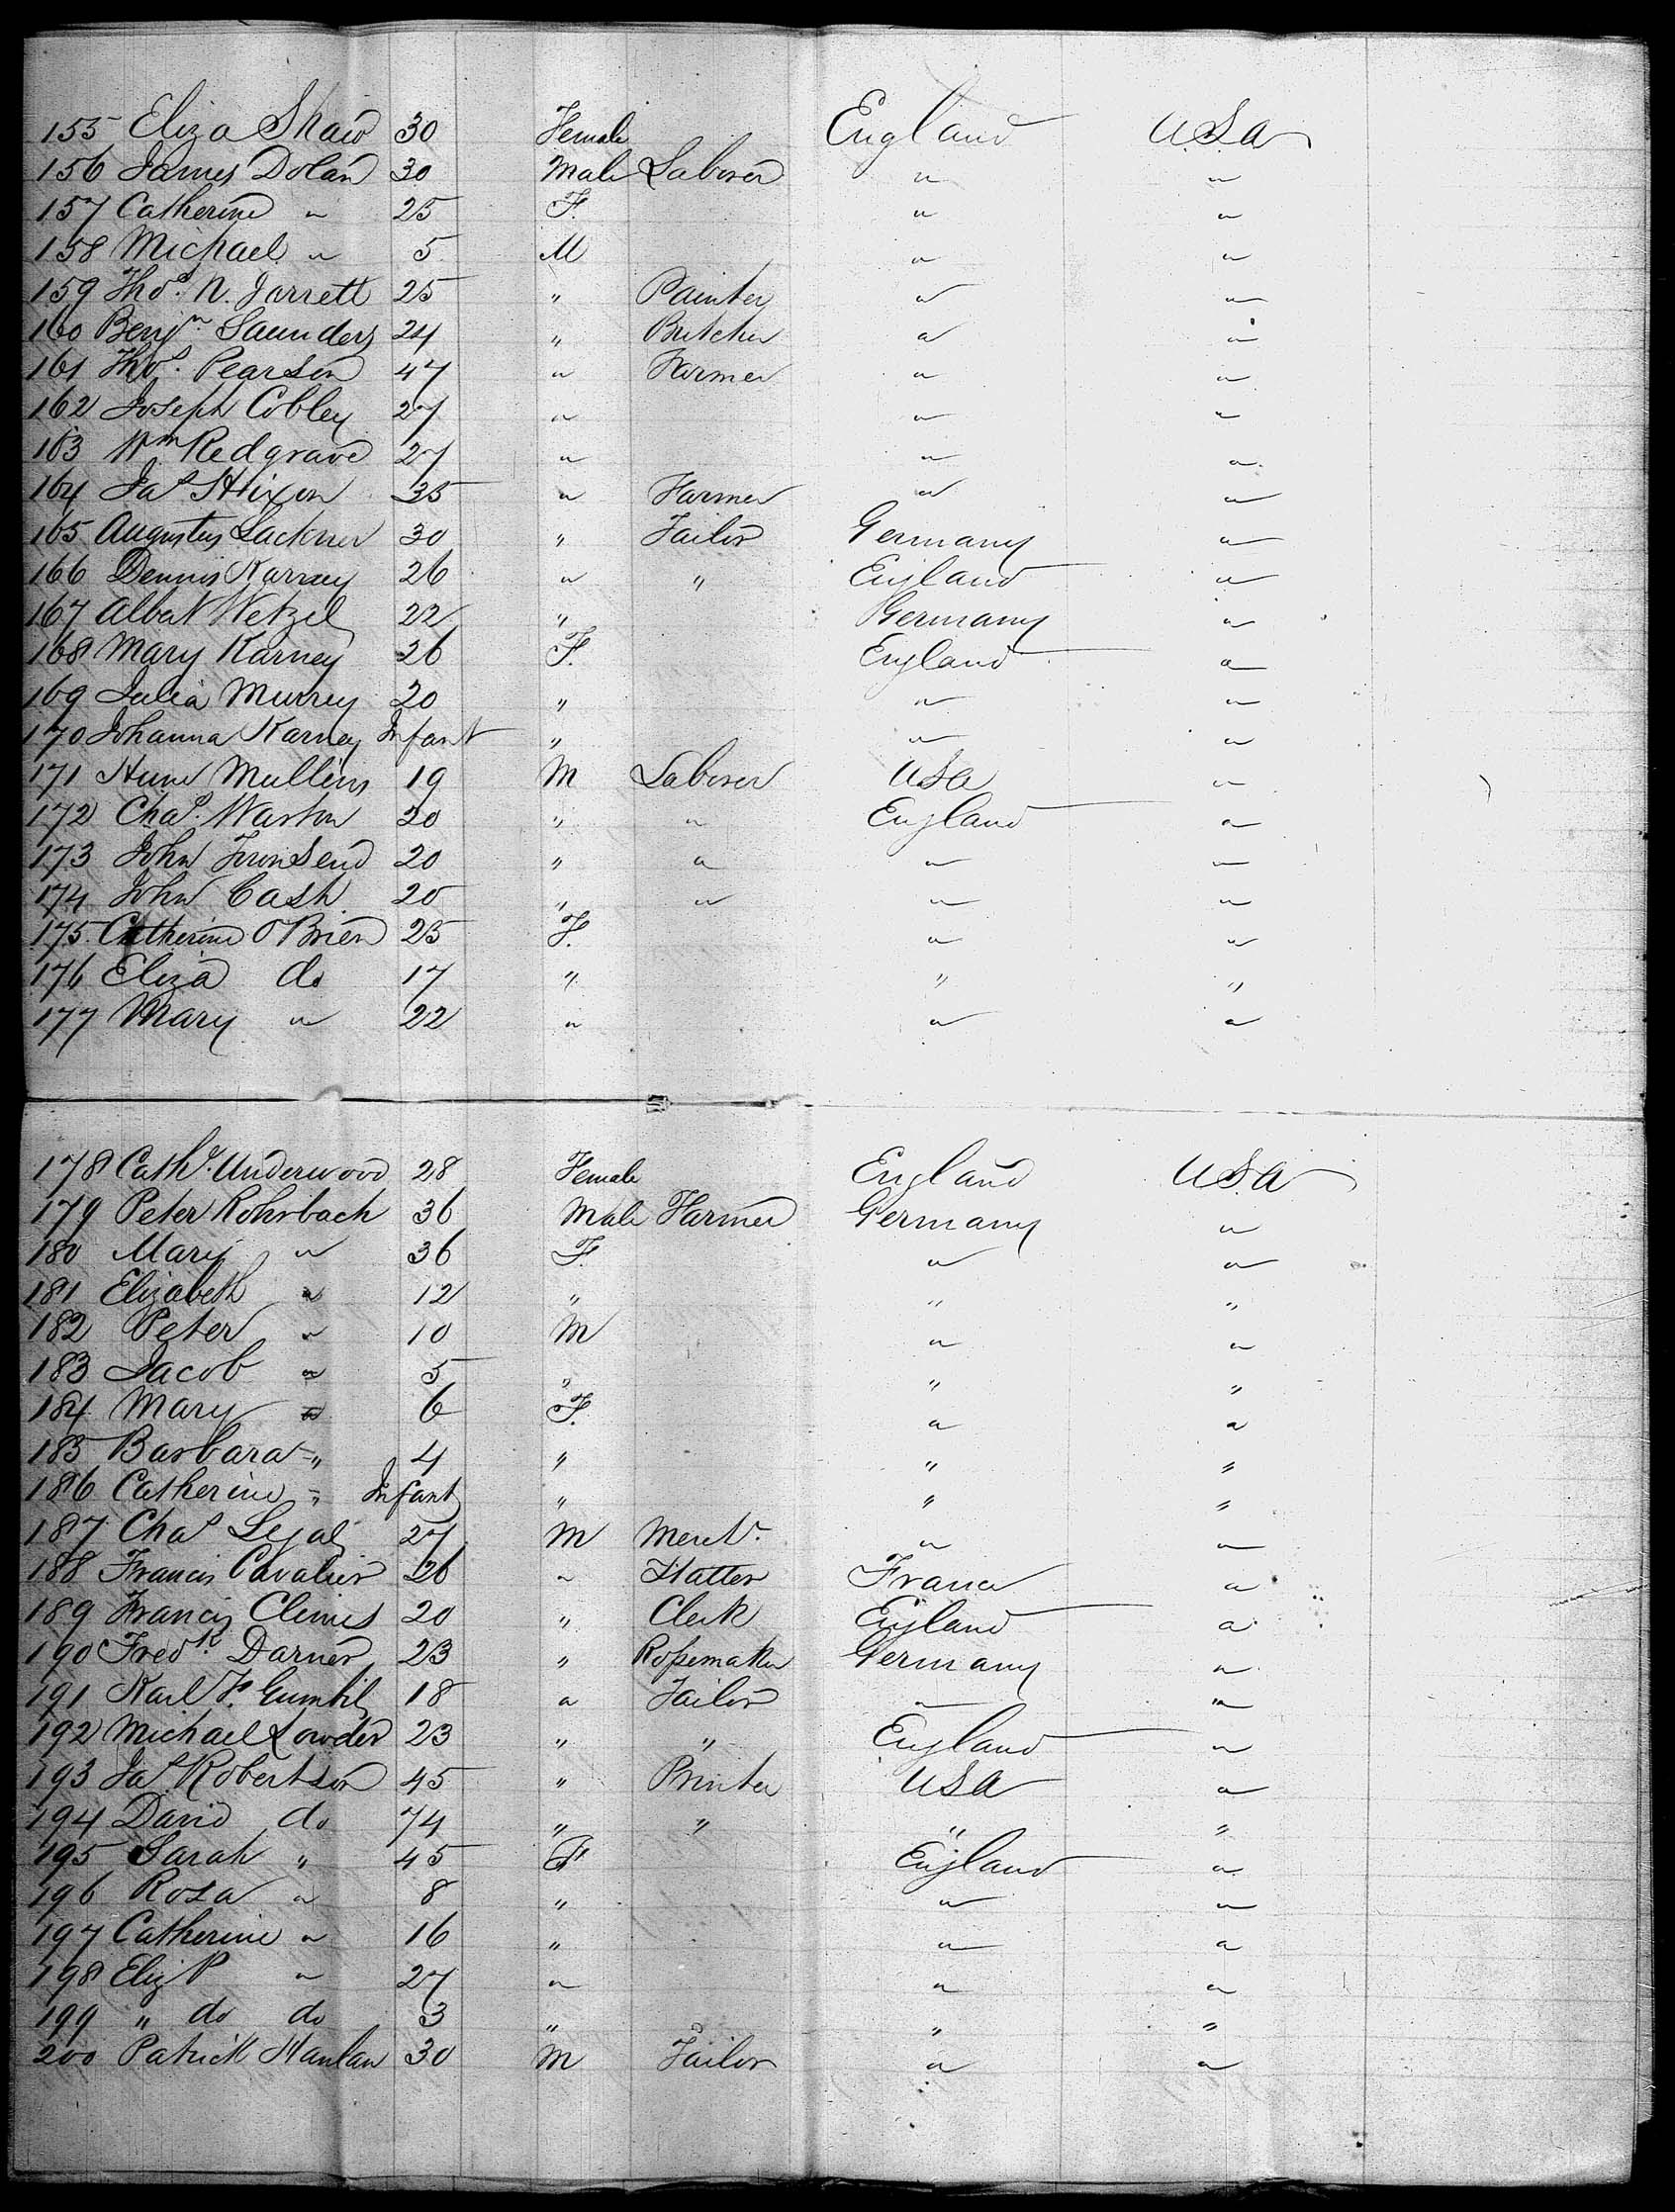 155 Eliza Shaw 30 Female England U.S.A
156 James Dolan 30 Male Laborer " "
157 Catherine " 25 F. " "
158 Michael " 5 M " "
159 Thos. N. Jarrett 25 " Painter " "
160 Benjn. Saunders 24 " Butcher " "
161 Thos. Pearson 47 " Farmer " "
162 Joseph Cobley 27 " " "
163 Wm Redgrave 27 " " "
164 Jas Hixon 35 " Farmer " "
165 Augustus Lackner 30 " Tailor Germany "
166 Dennis Karney 26 " " England "
167 Albert Wetzel 22 " Germany "
168 Mary Karney 26 F. England "
169 Julia Murrey 20 " " "
170 Johanna Karney Infant " " "
171 Mullins 19 M Laborer USA "
172 Chas. Warton 20 " " England "
173 John Townsend 20 " " " "
174 John Cash 20 " " " "
175 Catherine O'Brien 25 F. " "
176 Eliza do 17 " " "
177 Mary " 22 " " "
178 Cathe. Underwood 28 Female England U.S.A
179 Peter Rohrbach 36 Male Farmer Germany "
180 Mary " 36 F. " "
181 Elizabeth " 12 " " "
182 Peter " 10 M " "
183 Jacob " 5 " " "
184 Mary " 6 F. " "
185 Barbara " 4 " " "
186 Catherine " Infant " " "
187 Chas Legal 27 M Mercht. " "
188 Francis Cavalier 26 " Hatter France "
189 Francis 20 " Clerk England "
190 Fredk. Darner 23 " Ropemaker Germany "
191 Karl F. 18 " Tailor " "
192 Michael Lowder 23 " " England "
193 Jas Robertson 45 " Printer USA "
194 David do 74 " " " "
195 Sarah " 45 F England "
196 Rosa " 8 " " "
197 Catherine " 16 " " "
198 Eliz P " 27 " " "
199 " do do 3 " " "
200 Patrick Hanlan 30 M Tailor " "